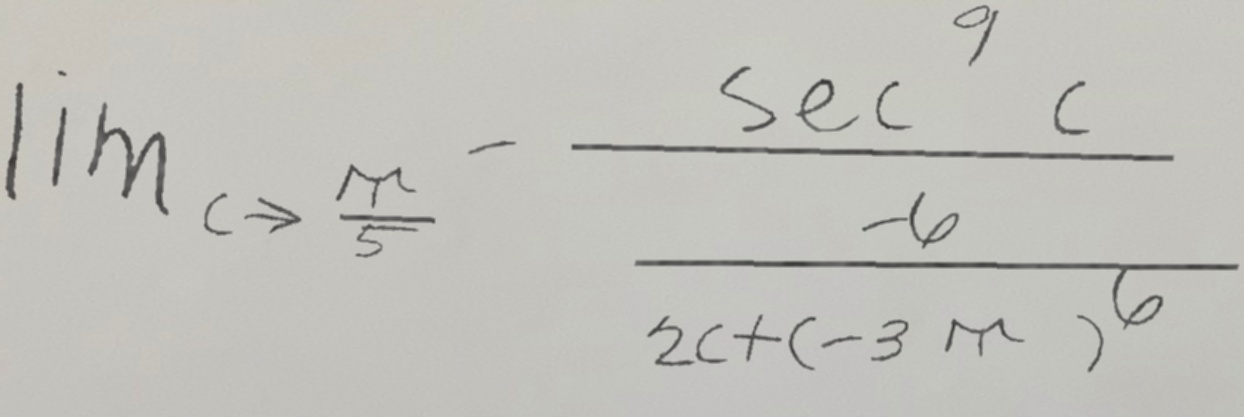 \lim_{c \to \frac{\pi}{5}} - \frac{\sec^{9} c}{\frac{-6}{2c+(-3\pi)^{6}}}